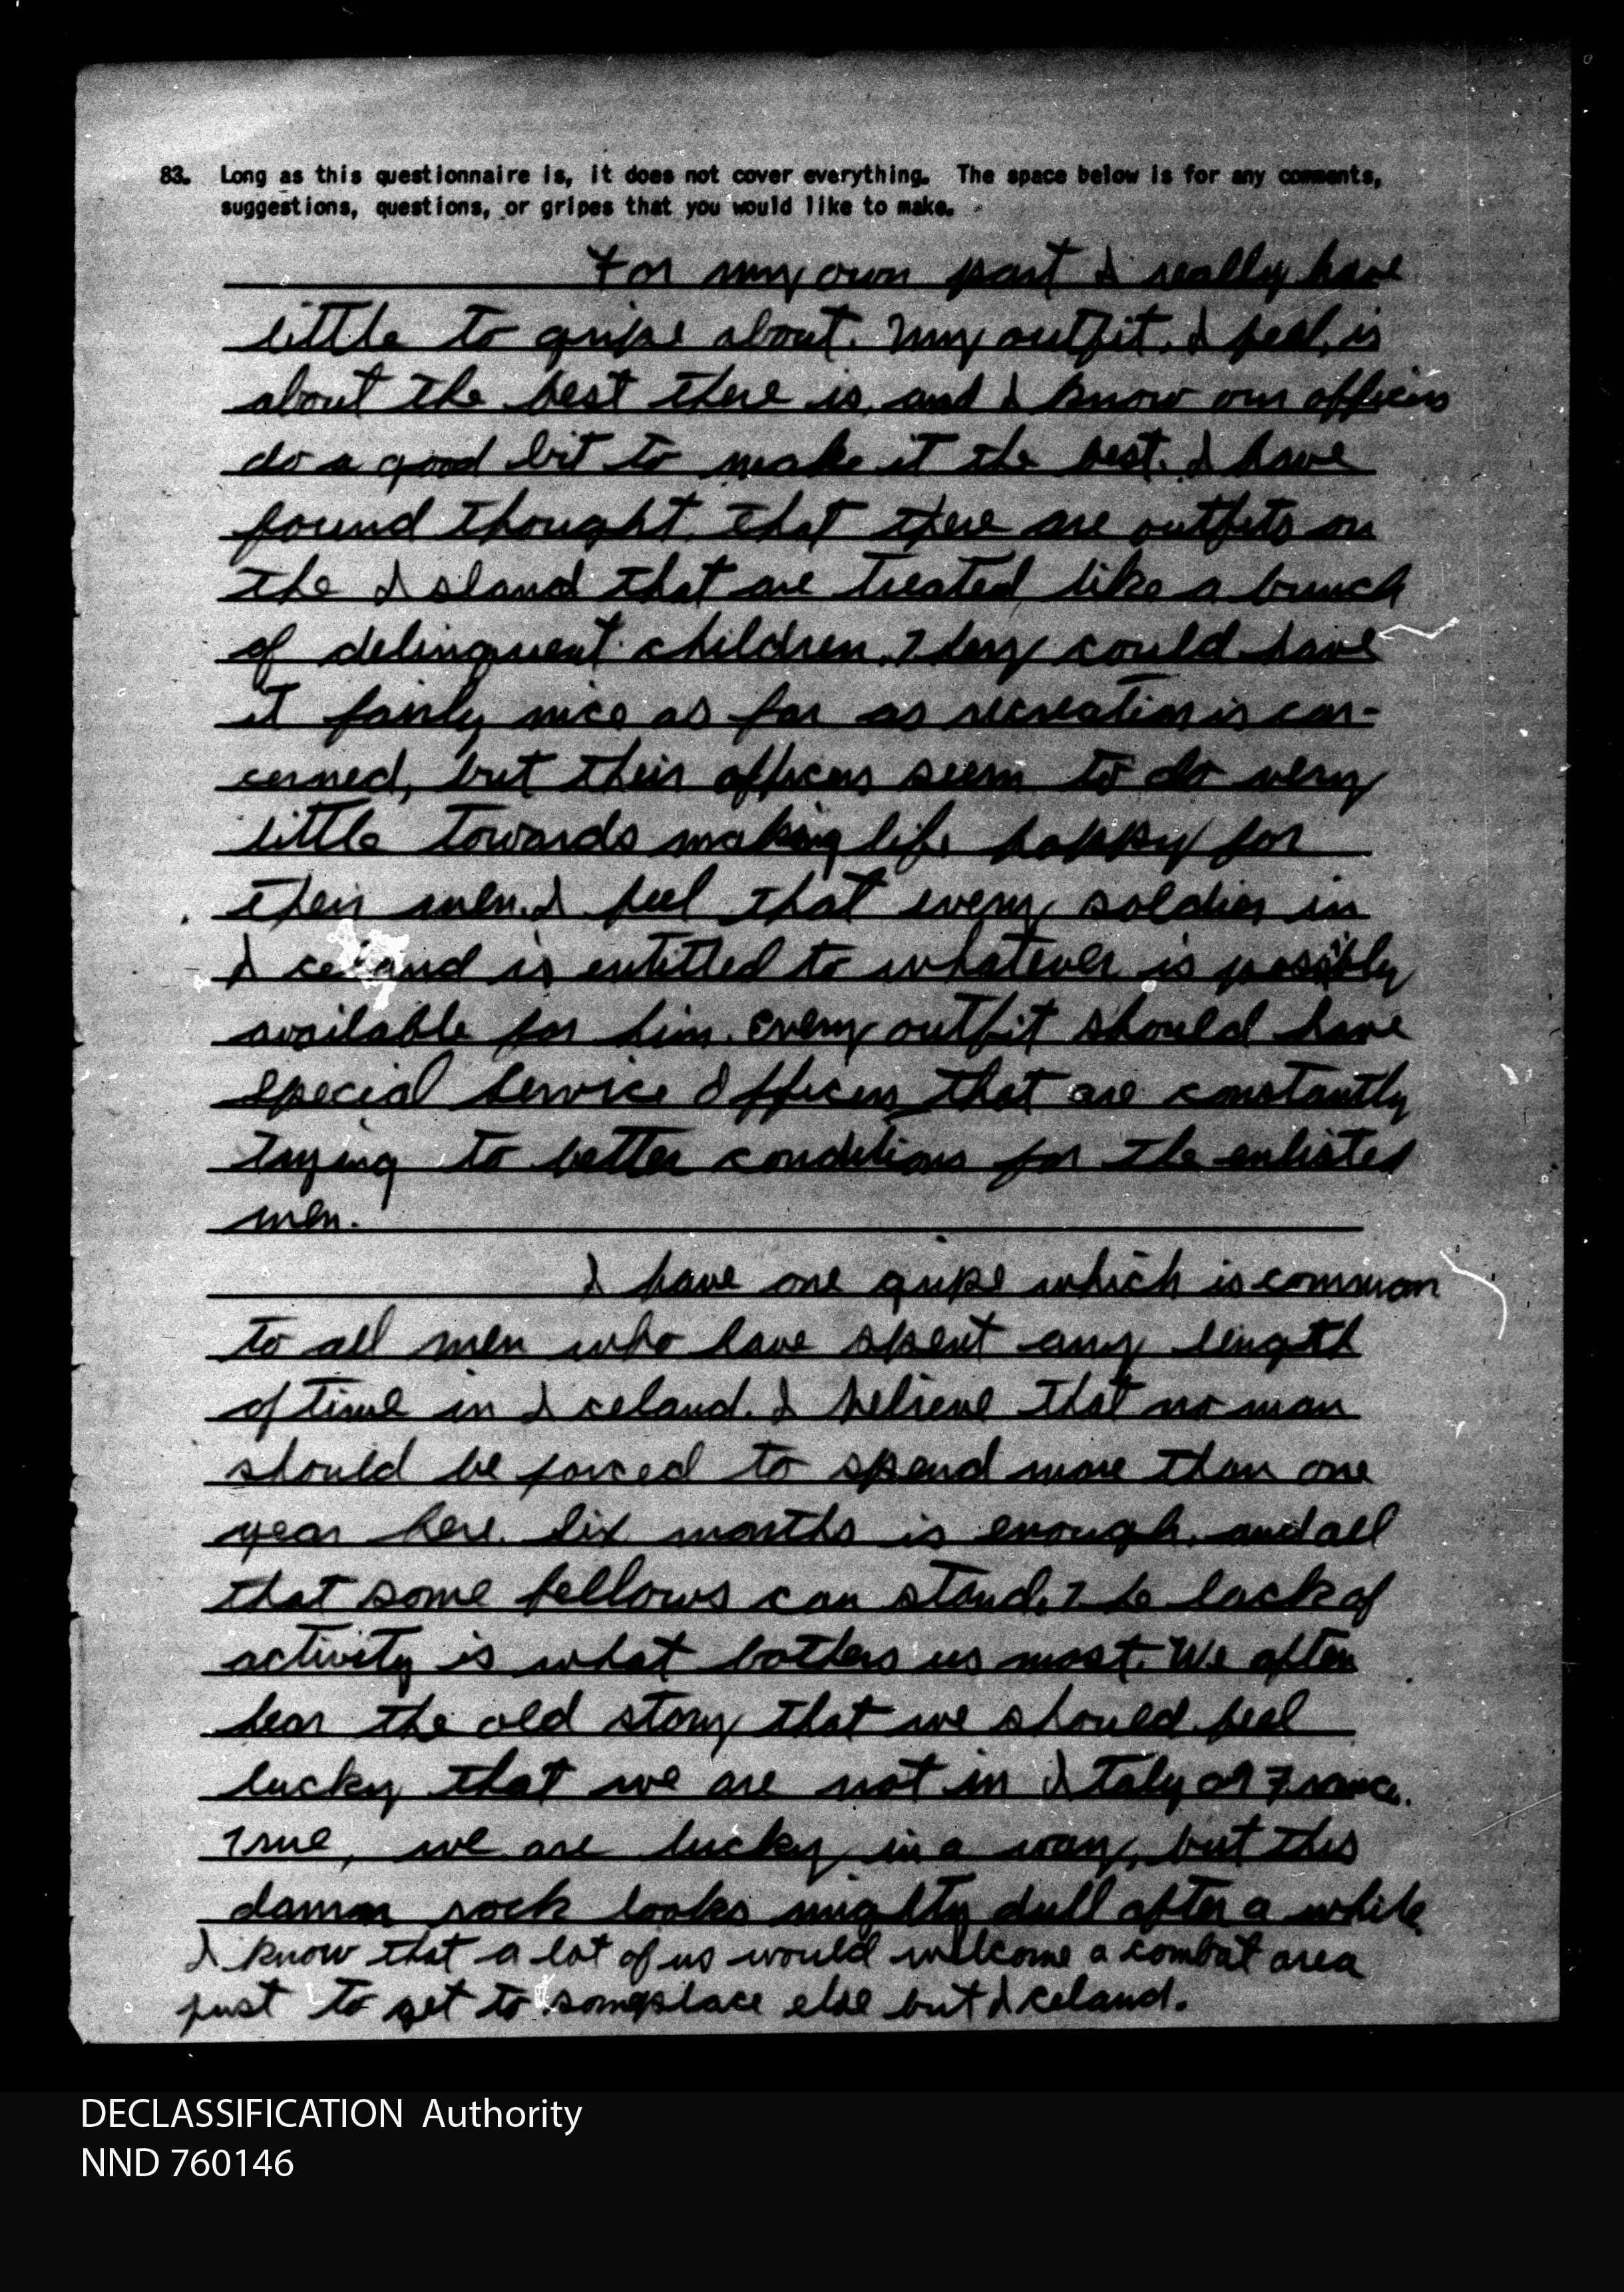 83. Long as this questionnaire is, it does not cover everything. The space below is for any comments,
suggestions, questions, or gripes that you would like to make.
For my own part I really have
little to gripe about. My outfit, I feel, is
about the best there is, and I know our officers
do a good bit to make it the best. I have
found thought, that there are outfits on
the Island that are treated like a bunch
of delinquent children. They could have
it fairly nice as far as recreation is con-
cerned, but their officers seem to do very
little towards making life happy for
their men. I feel that every soldier in
Iceland is entitled to whatever is possibly
available for him. Every outfit should have
Special Service Officers that are constantly
trying to better conditions for the enlisted
men.
I have one gripe which is common
to all men who have spent any length
of time in Iceland. I believe that no man
should be forced to spend more than one
year here. Six months is enough, and all
that some fellows can stand. The lack of
activity is what bothers us most. We often
hear the old story that we should feel
lucky that we are not in Italy or France.
True, we are lucky in a way, but this
damn rock looks mighty dull after a while.
I know that a lot of us would welcome a combat area
just to get to someplace else but Iceland.
DECLASSIFICATION Authority
NND 760146